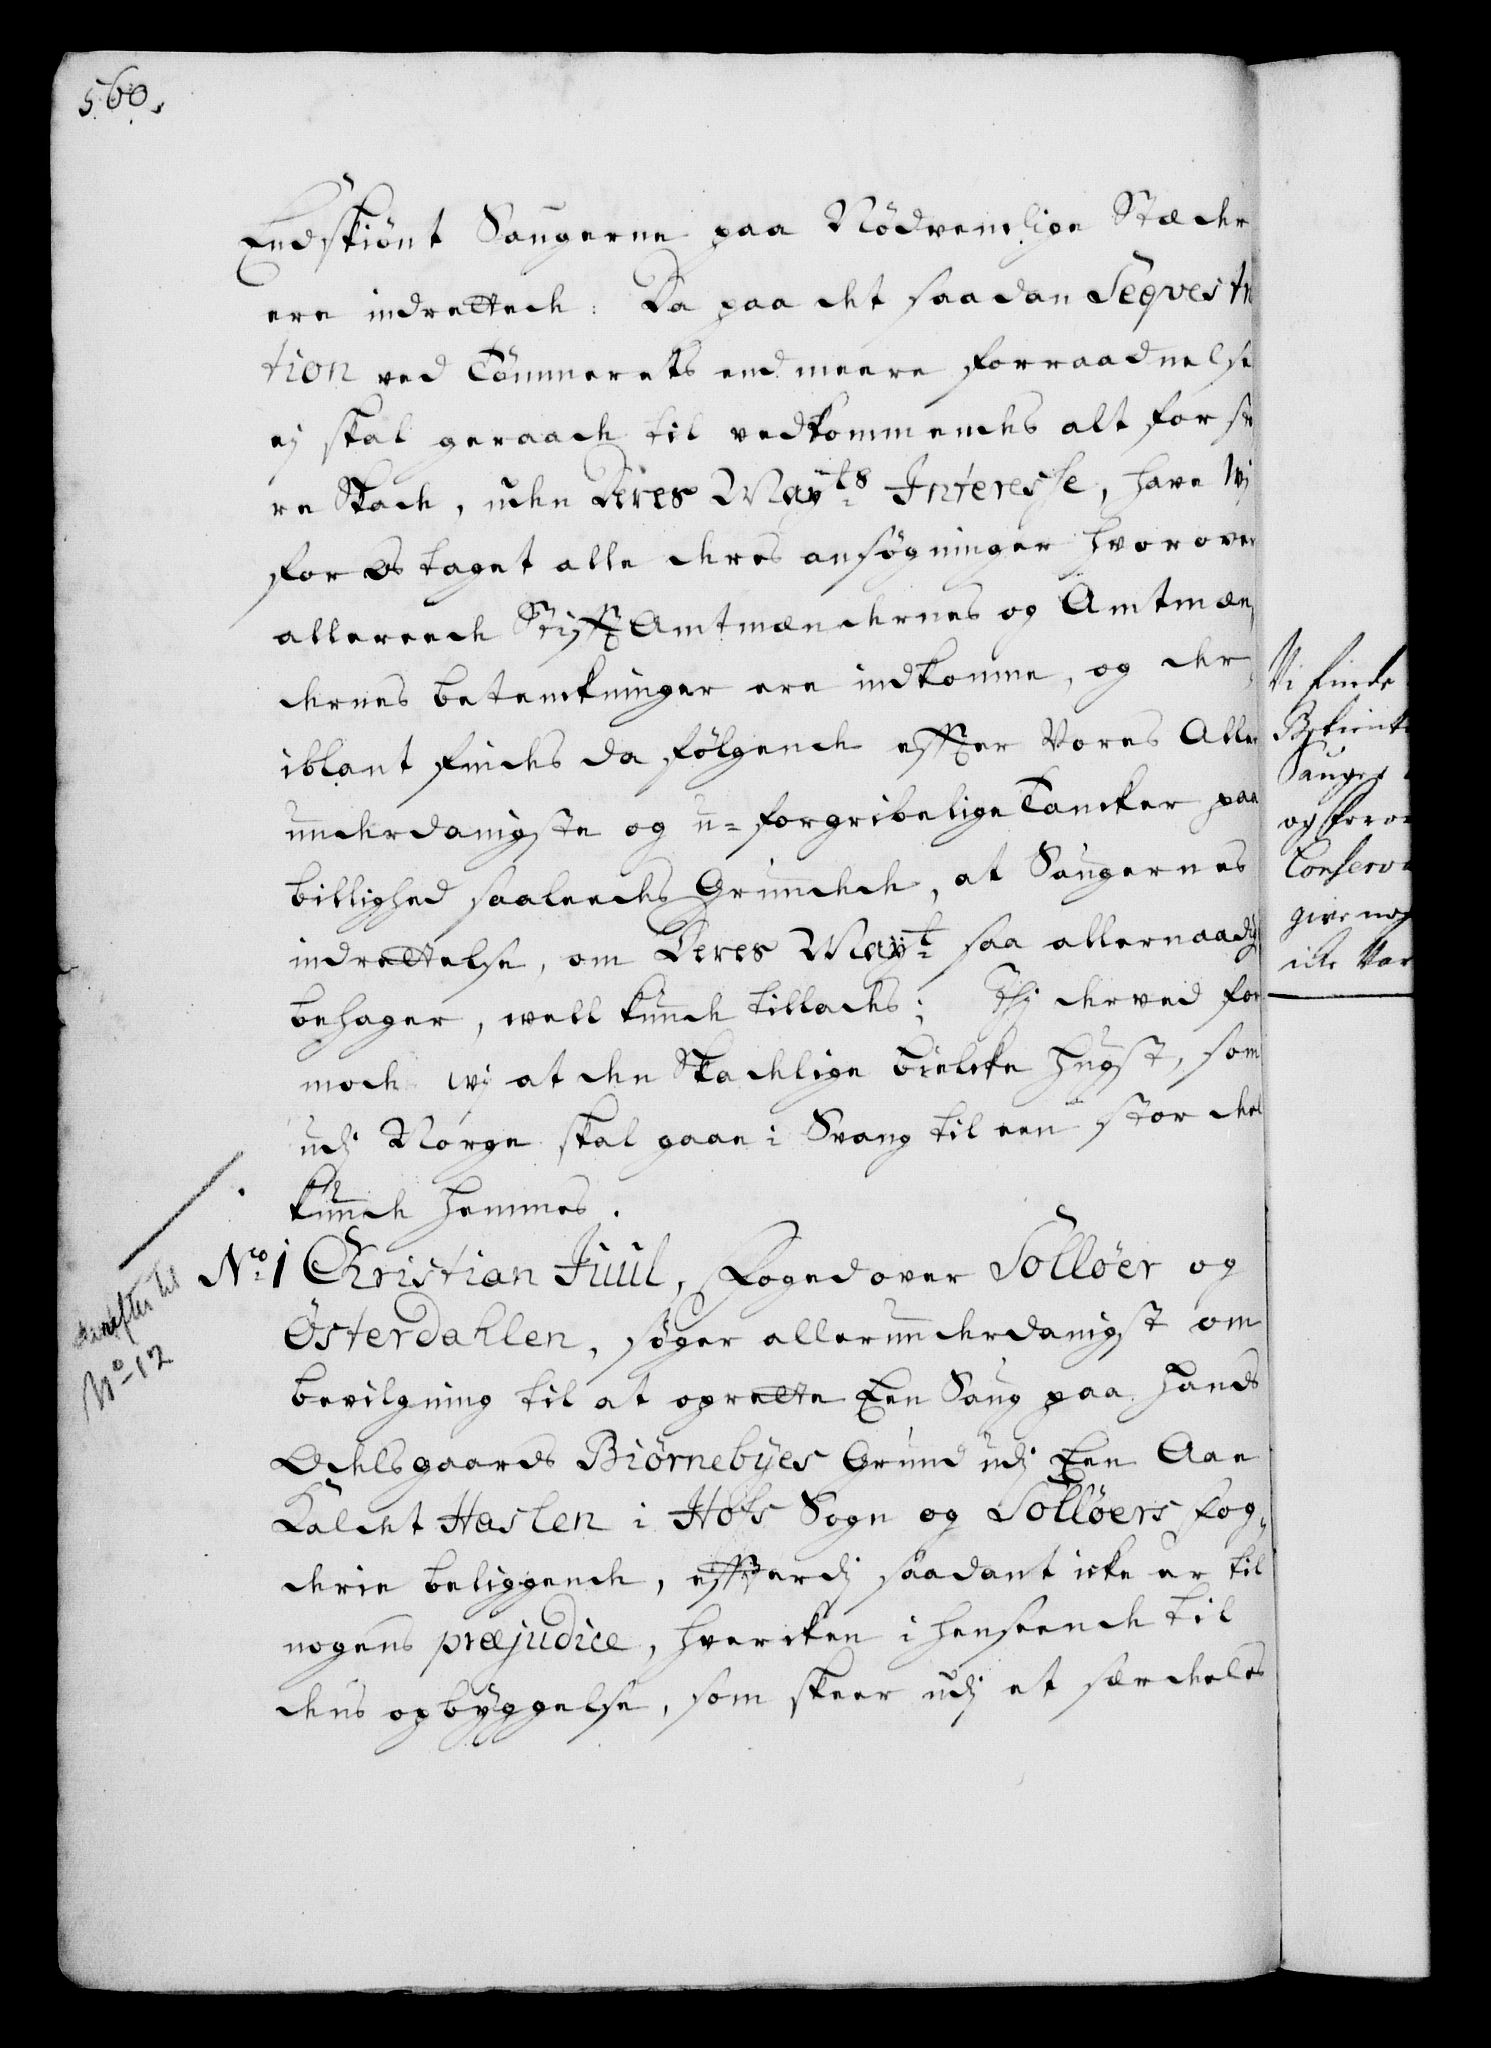 560.
Endskiönt Saugerne paa Nödvendige Stæder
ere indrettede: Da paa det saadan Seqvestra
tion ved Tömmerets end meere forraadnelse
ej skal geraade til vedkommendes alt for sto
re Skade, uden Deres Mayts Interesse, have Wj
for os taget alle deres ansøgninger hvorover
allereede Stiffts Amtmændernes og Amtmæn,
dernes betenkninger ere indkomne, og der
iblant findes da følgende effter Vores Aller
underdanigste og u=forgribelige Tancker paa
billighed saaleedes Grundede, at Saugernes
indrettelse, om Deres Mayt saa allernaadigst
behager, well kunde tillades; Thj derved for
mode wj at den Skadelige bielcke Hugst, som
udj Norge skal gaae i Svang til een stor deel
kunde hemmes.
No 1 Christian Juul, Foged over Solløer og
Østerdahlen, søger allerunderdanigst om
bevilgning til at oprette Een Saug paa hands
Odelsgaards Biørnebyes Grund udj Een Aae
Kaldet Haslen i Hofs Sogn og Solløers fog,
derie beliggende, effterdj saadant icke er til
nogens præjudice, hvercken i henseende til
dens opbyggelse, som skeer udj et særdeles
No 12
Vi finde
Betienter
Sauger
og foror
Conserva
give nog
icke Var